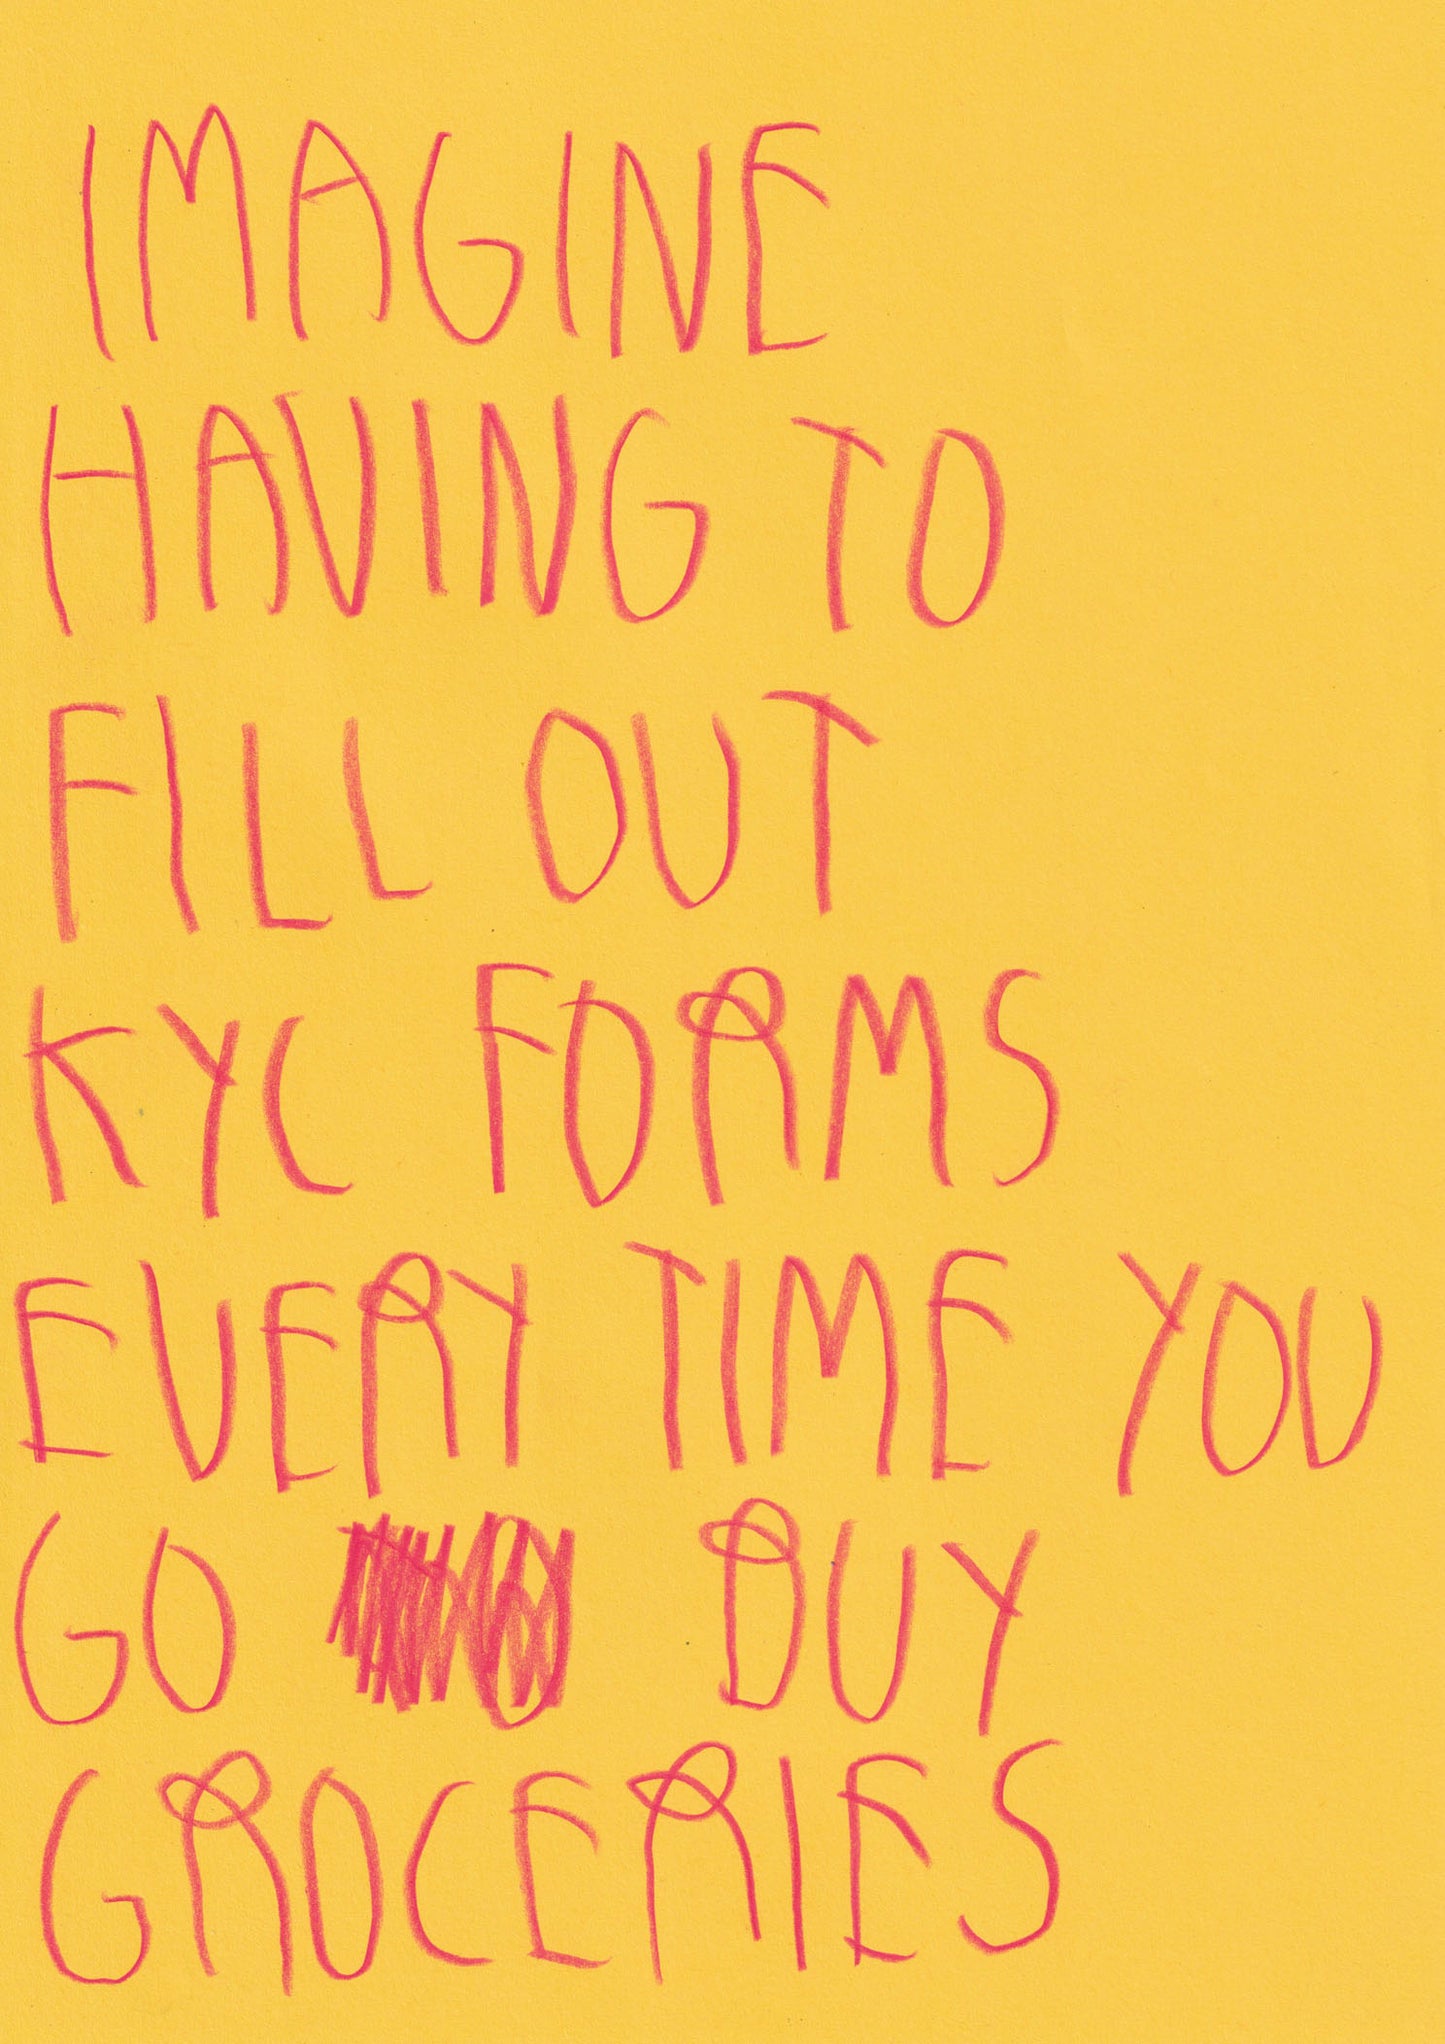 IMAGINE
HAVING TO
FILL OUT
KYC FORMS
EVERY TIME YOU
GO BUY
GROCERIES